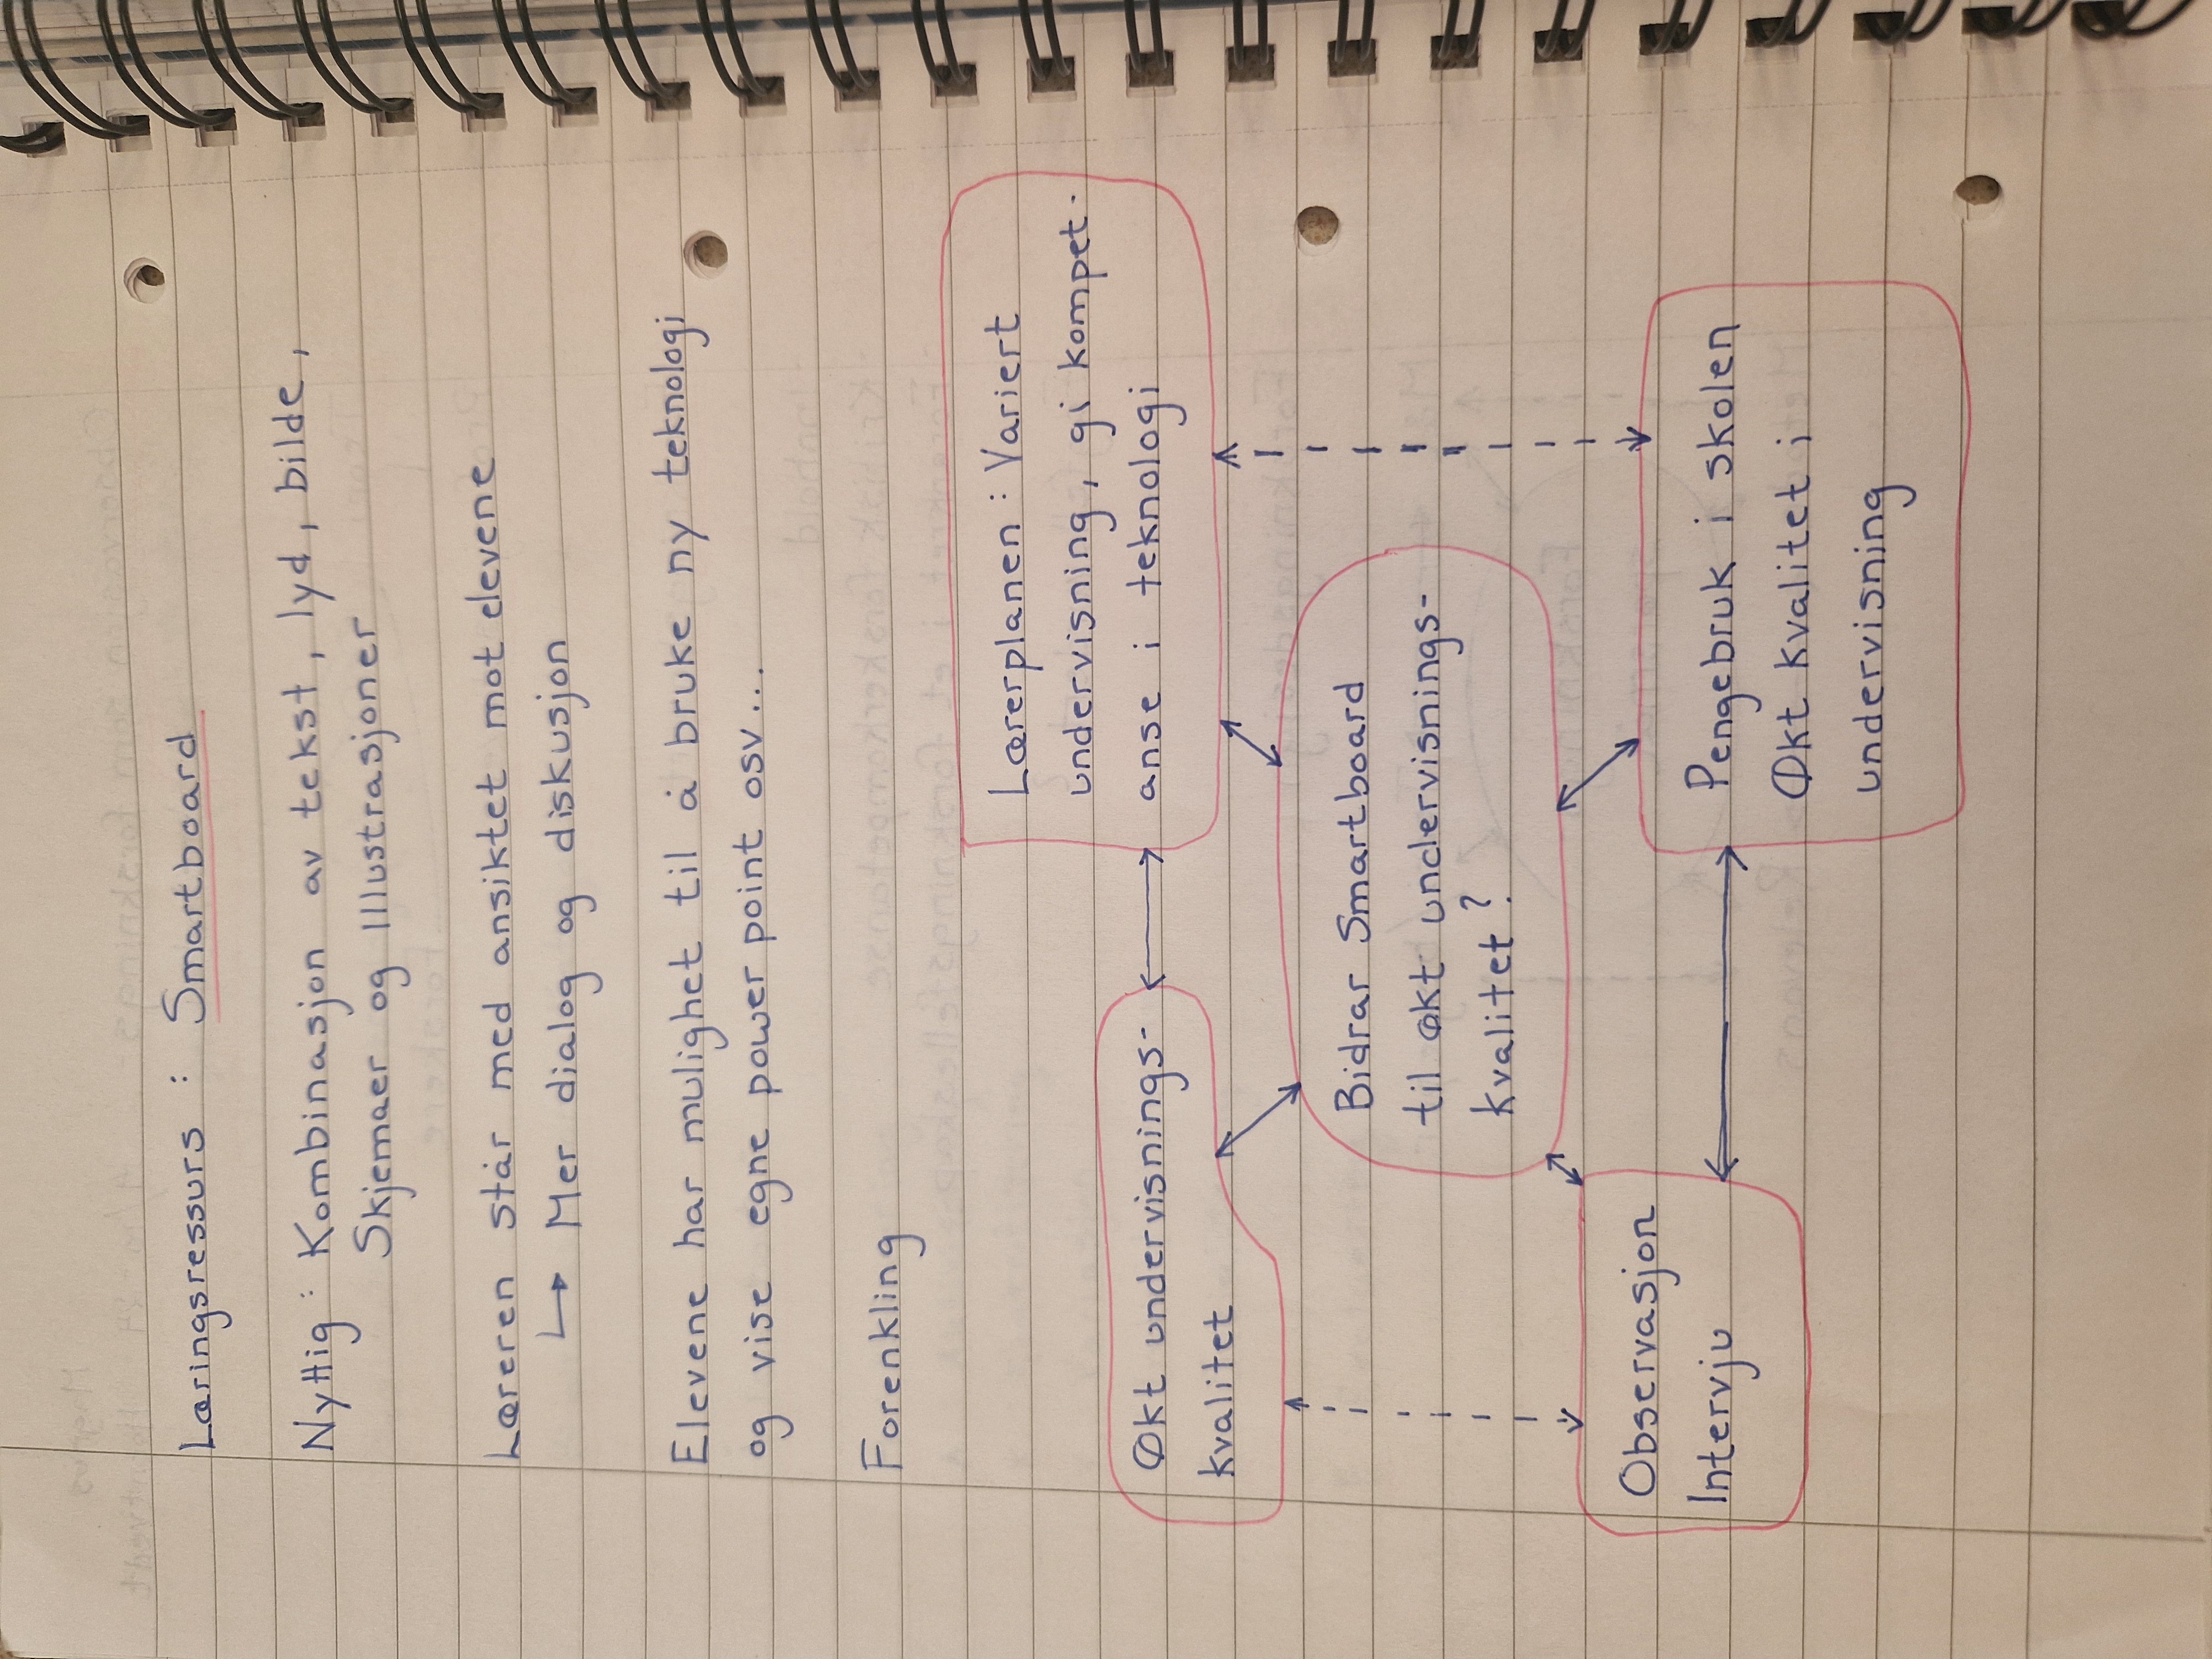 Læringsressurs : Smartboard
Nyttig : Kombinasjon av tekst, lyd, bilde,
Skjemaer og Illustrasjoner
Læreren står med ansiktet mot elevene
↳ Mer dialog og diskusjon
Elevene har mulighet til å bruke ny teknologi
og vise egne power point osv...
Forenkling
Økt undervisnings-
kvalitet
Lærerplanen : Variert
undervisning, gi kompet-
anse i teknologi
Bidrar Smartboard
til økt undervisnings-
kvalitet?
Observasjon
Intervju
Pengebruk i skolen
Økt kvalitet i
undervisning